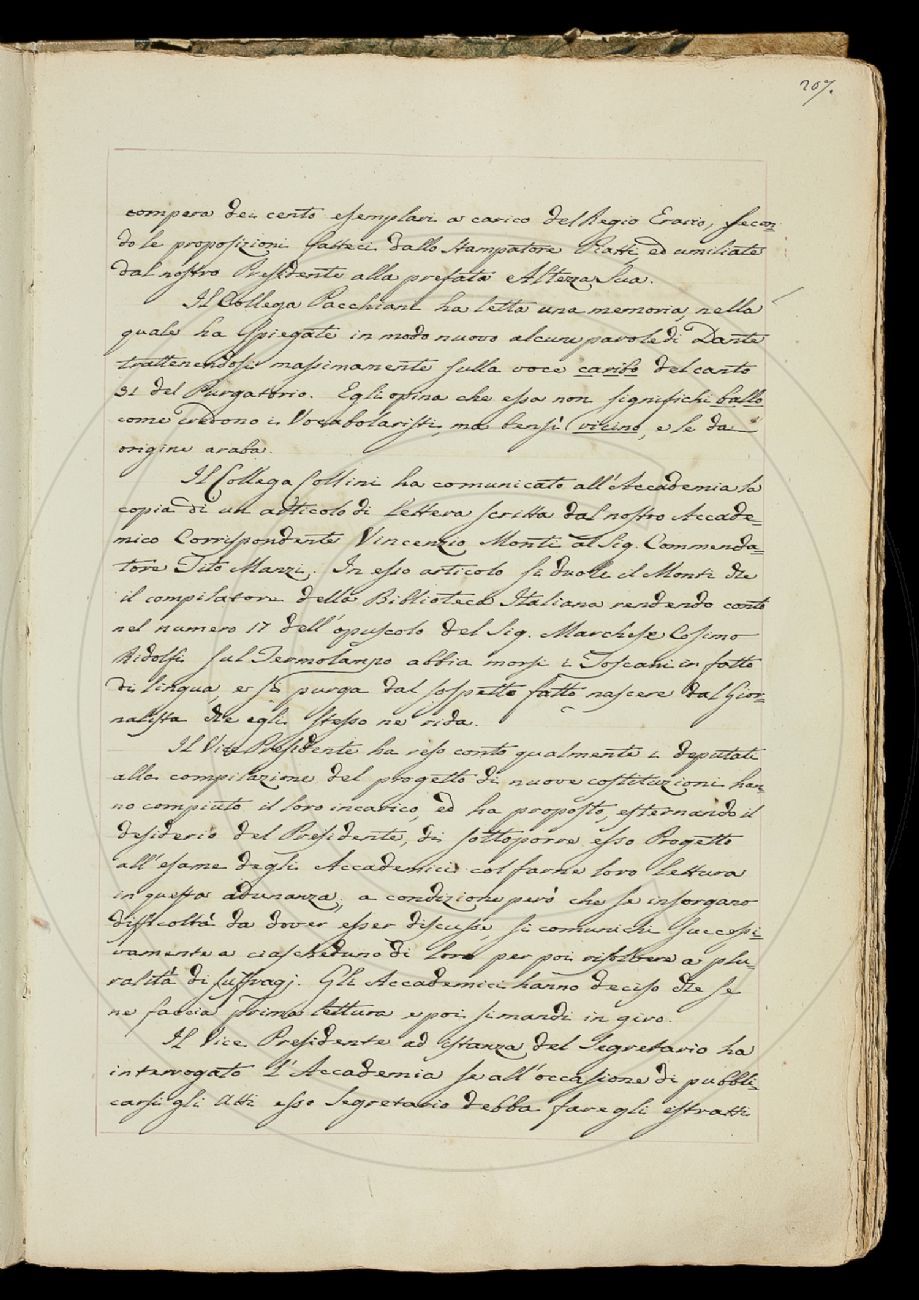 207.
compera dei cento esemplari a carico del Regio Erario, secon-
do le proposizioni fatteci dallo Stampatore Piatti, ed umiliate
dal nostro Presidente alla prefata Altezza Sua.
Il Collega Pacchiani ha letta una memoria, nella
quale ha spiegate in modo nuovo alcune parole di Dante
trattenendosi massimamente sulla voce caribo del canto
31 del Purgatorio. Egli opina che essa non significhi ballo
come credono i Vocabolaristi, ma bensì vicino, e le dà
origine araba.
Il Collega Collini ha comunicato all'Accademia la
copia di un articolo di Lettera scritta dal nostro Accade-
mico Corrispondente Vincenzio Monti al Sig. Commenda-
tore Tito Manzi. In esso articolo si duole il Monti che
il compilatore della Biblioteca Italiana rendendo conto
nel numero 17 dell'opuscolo del Sig. Marchese Cosimo
Ridolfi sul Termolampo abbia morsi i Toscani in fatto
di lingua, e si purga dal sospetto fatto nascere dal Gior-
nalista che egli stesso ne rida.
Il Vice Presidente ha reso conto qualmente i deputati
alla compilazione del progetto di nuove costituzioni han-
no compiuto il loro incarico, ed ha proposto, esternando il
desiderio del Presidente, di sottoporre esso Progetto
all'esame degli Accademici col farne loro lettura
in questa adunanza, a condizione però che se insorgano
difficoltà da dover esser discusse, si comunichi successi-
vamente a ciascheduno di loro per poi risolvere a plu-
ralità di suffragj. Gli Accademici hanno deciso che se
ne faccia prima lettura e poi si mandi in giro.
Il Vice Presidente ad istanza del Segretario ha
interrogato l'Accademia se all'occasione di pubbli-
carsi gli Atti esso Segretario debba fare gli estratti